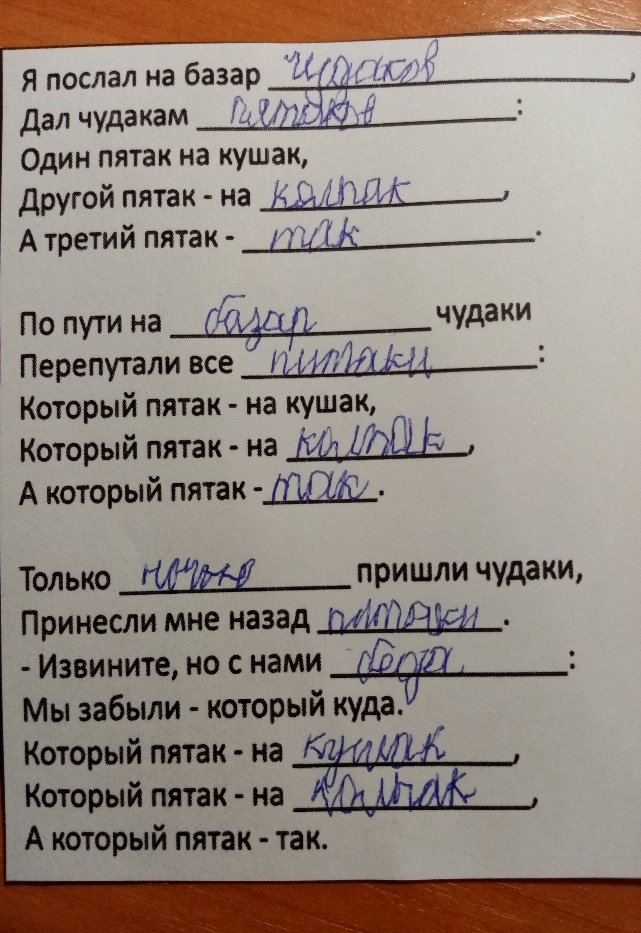 Я послал на базар чудаков,
Дал чудакам пятаков:
Один пятак на кушак,
Другой пятак - на колпак,
А третий пятак - так.
По пути на базар чудаки
Перепутали все питаки:
Который пятак - на кушак,
Который пятак - на колпак,
А который пятак - так.
Только ночью пришли чудаки,
Принесли мне назад пятаки.
- Извините, но с нами беда:
Мы забыли - который куда.
Который пятак - на кушак,
Который пятак - на колпак,
А который пятак - так.